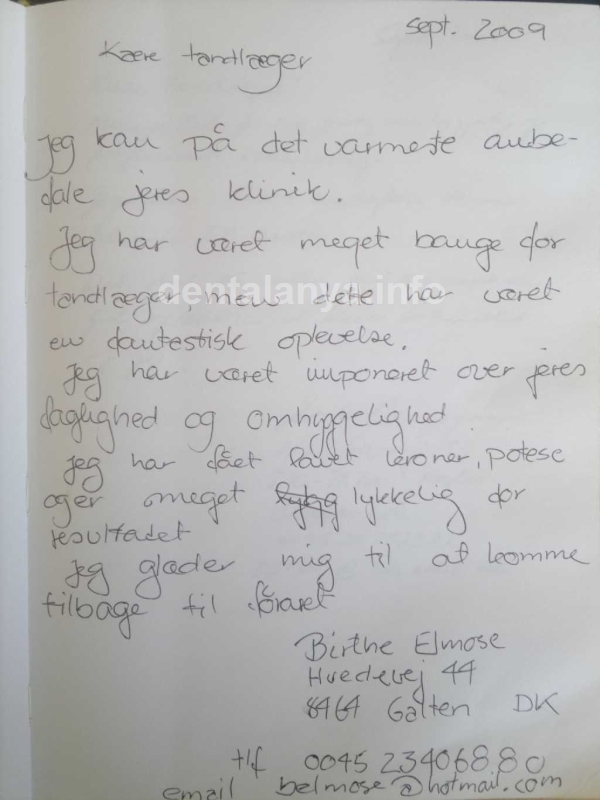 sept. 2009
Kære tandlæger
jeg kan på det varmeste anbe-
fale jeres klinik.
Jeg har været meget bange for
dentalanya.info
tandlæger, men dete har været
en fantestisk oplevelse.
Jeg har været imponeret over jeres
faglighed og omhyggelighed
Jeg har fået lavet kroner, potese
og er meget lykkelig for
resultadet
Jeg glæder mig til at komme
tilbage til foraret
Birthe Elmose
Hvedevej 44
8464 Galten DK
tlf 0045 23406880
email belmose@hotmail.com